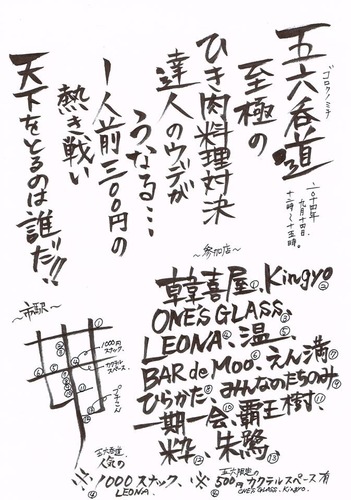 五六呑道
ゴロクノミチ
至極の
ひき肉料理対決
達人のウデが
うなる…
1人前三〇〇円の
熱き戦い
天下をとるのは誰だ!!
二〇十四年
九月十四日
十二時〜十五時。
〜参加店〜
韓喜屋①、Kingyo②
ONE'S GLASS③
LEONA④、温⑤
BAR de Moo⑥、えん満⑦
ひらかた⑧、みんなのたちのみ⑨
一期一会⑩、覇王樹⑪
粋⑫、朱鷺⑬
〜市駅〜
1000円
スナック
カクテル
スペース
五六呑道
人気の
※1000スナック、
LEONA.
④
五六限定の
※500円カクテルスペース有
②ONE'S GLASS、Kingyo.